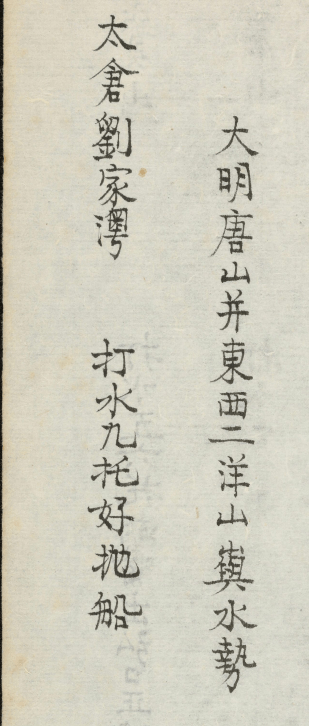 大明唐山并東西二洋山嶼水勢
太倉劉家澚 打水九托好抛船